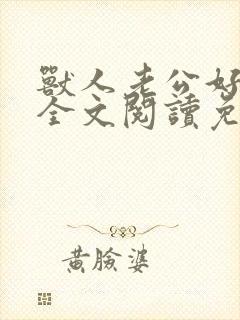 獸人老公好
全文閱讀免
黃臉婆